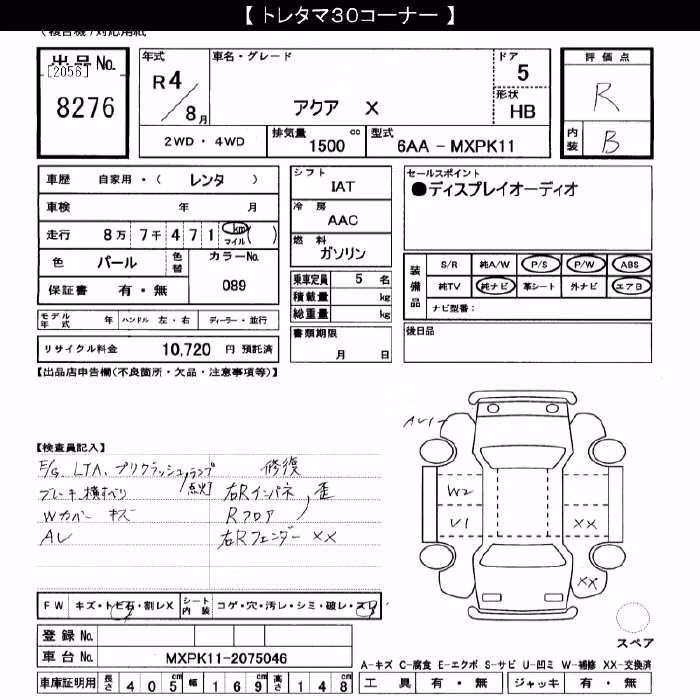 【 トレタマ30コーナー 】
(複合機)対応用紙
出品No.
[2056]
8276
年式
R4
8月
車名・グレード
アクア X
ドア
5
形状
HB
評価点
R
内装
B
2WD・4WD
排気量 1500 cc
型式 6AA - MXPK11
車歴 自家用・( レンタ )
車検 年 月
走行 8万 7千 4 7 1 km マイル ( )
色 パール 色替 カラーNo. 089
保証書 有・無
モデル年式 年 ハンドル 左・右 ディーラー・並行
リサイクル料金 10,720 円 預託済
シフト
IAT
冷房
AAC
燃料
ガソリン
乗車定員 5 名
積載量 kg
総重量 kg
書類期限
月 日
セールスポイント
●ディスプレイオーディオ
装備品
S/R 純A/W P/S P/W ABS
純TV 純ナビ 革シート 外ナビ エアB
ナビ型番:
後日品
【出品店申告欄(不良箇所・欠品・注意事項等)】
【検査員記入】
E/G、LTA、プリクラッシュ、ランプ点灯
ブレーキ横すべり
Wカバー キズ
AU
修復
右Rインパネ、歪
Rフロア
右Rフェンダー XX
AU1
W2
U1
XX
XX
スペア
FW キズ・トビ石・割レX
シート内装 コゲ・穴・汚レ・シミ・破レ・スレ
登録No.
車台No. MXPK11-2075046
車庫証明用 長さ 405 cm 幅 169 cm 高さ 148 cm
A-キズ C-腐食 E-エクボ S-サビ U-凹ミ W-補修 XX-交換済
工具 有・無 ジャッキ 有・無